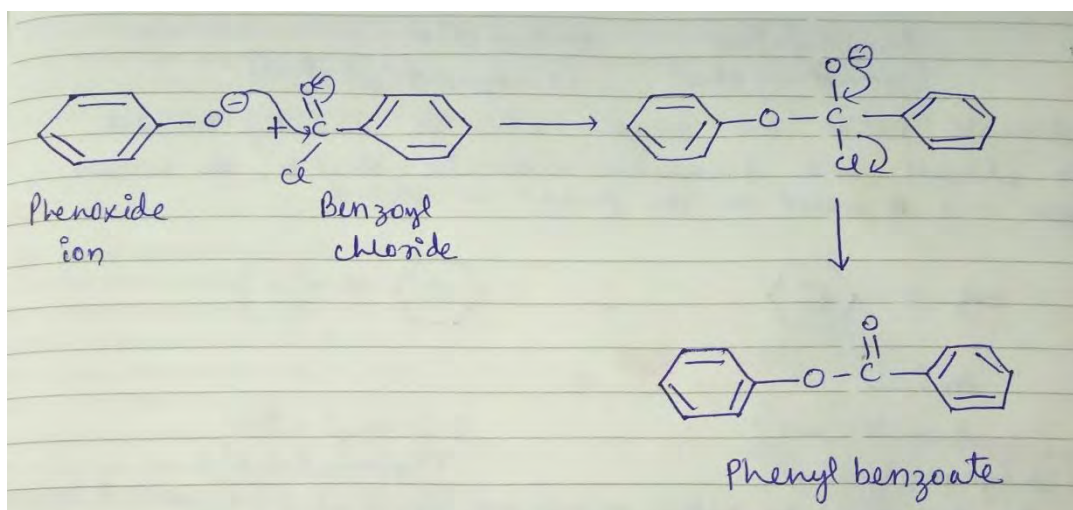 O⊖ + O C Cl
O⊖
O C
Cl
Phenoxide
ion
Benzoyl
chloride
O
O-C
Phenyl benzoate